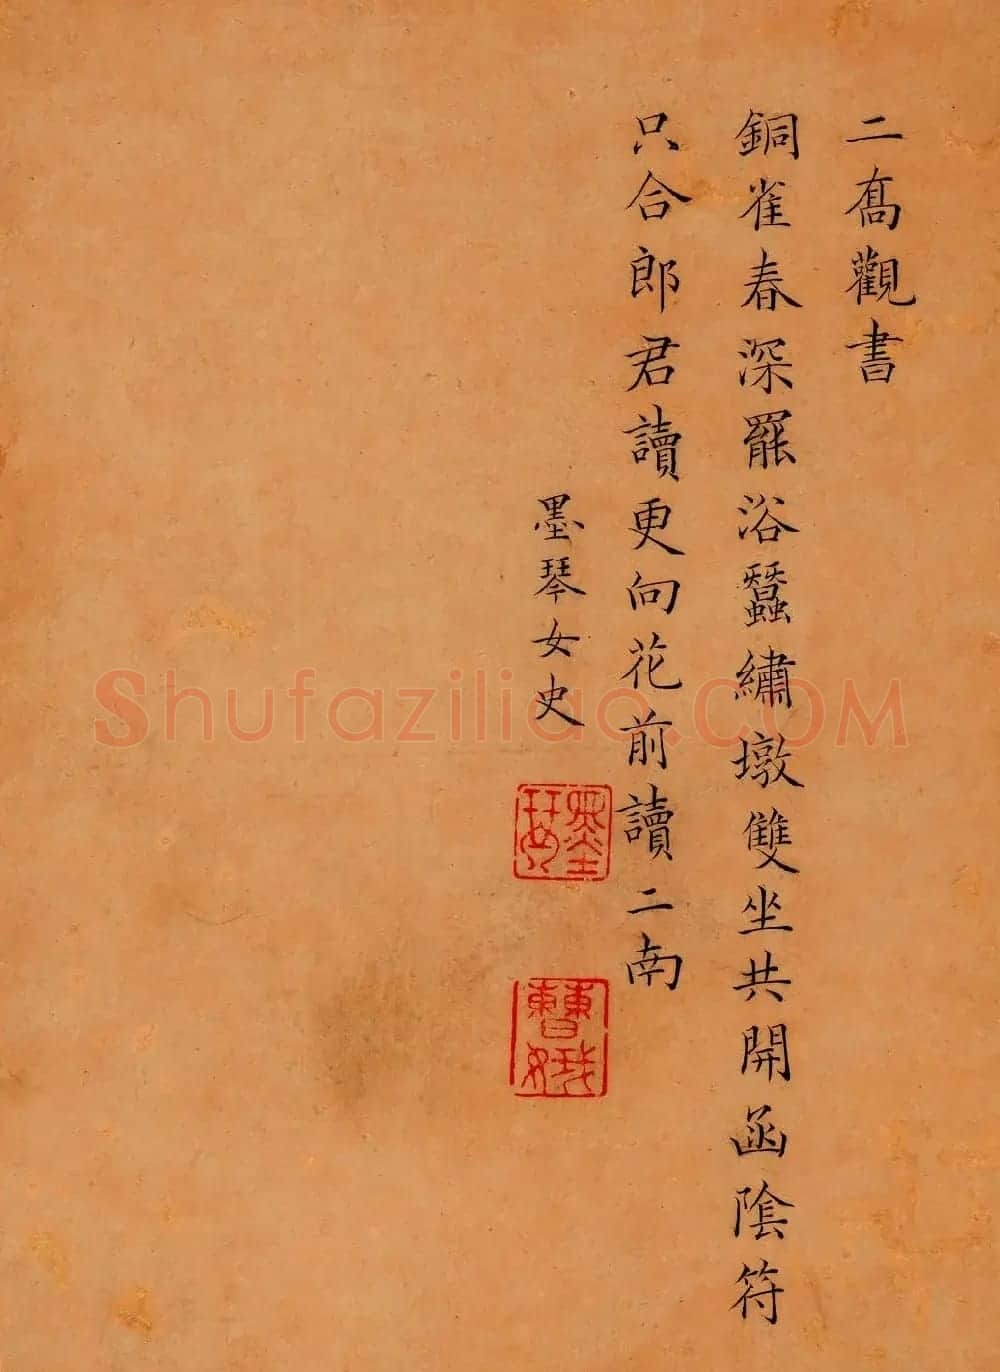 二喬觀書
銅雀春深罷浴蠶繡墩雙坐共開函陰符
只合郎君讀更向花前讀二南
墨琴女史
墨琴
Shufaziliao.COM